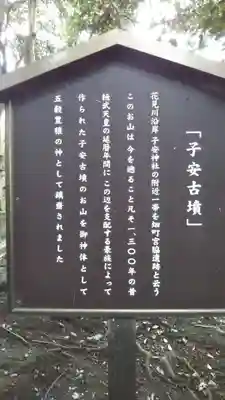 「子安古墳」
花見川沿岸 子安神社の附近一帯を畑町宮脇遺跡と云う
このお山は 今を遡ること凡そ一、三〇〇年の昔
桓武天皇の延暦年間に この辺を支配する豪族によって
作られた子安古墳のお山を御神体として
五穀豊穣の神として鎮齋されました